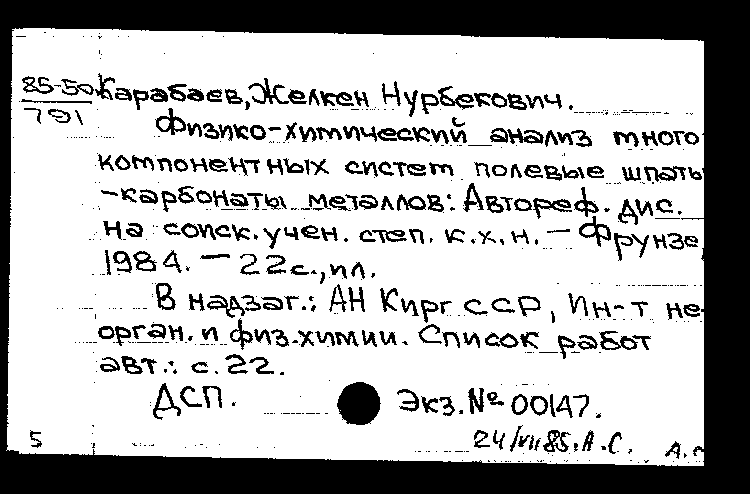 85-50
791
Карабаев, Желкен Нурбекович.
Физико-химический анализ много
компонентных систем полевые шпаты
-карбонаты металлов: Автореф. дис.
на соиск. учен. степ. к.х.н. - Фрунзе,
1984. - 22с., ил.
В надзаг.: АН Кирг ССР, Ин-т не-
орган. и физ. химии. Список работ
авт.: с. 22.
ДСП. Экз. № 00147.
5 24/VII 85. А.С. А.